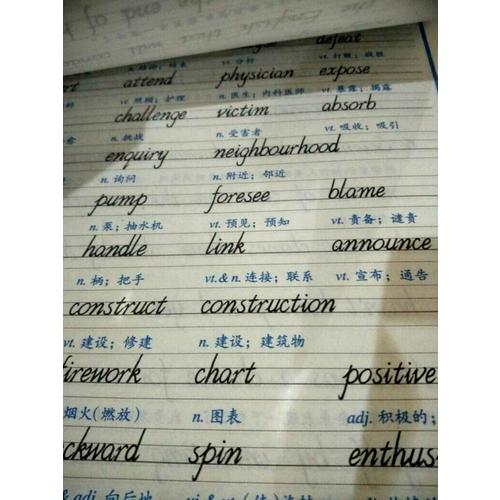 defeat
attend physician expose
vt. 照顾；护理 n. 医生；内科医师 vt. 暴露；揭露
challenge victim absorb
n. 挑战 n. 受害者 vt. 吸收；吸引
enquiry neighbourhood
n. 询问 n. 附近；邻近
pump foresee blame
n. 泵；抽水机 vt. 预见；预知 vt. 责备；谴责
handle link announce
n. 柄；把手 vt.&n. 连接；联系 vt. 宣布；通告
construct construction
vt. 建设；修建 n. 建设；建筑物
firework chart positive
烟火(燃放) n. 图表 adj. 积极的；
ckward spin enthus